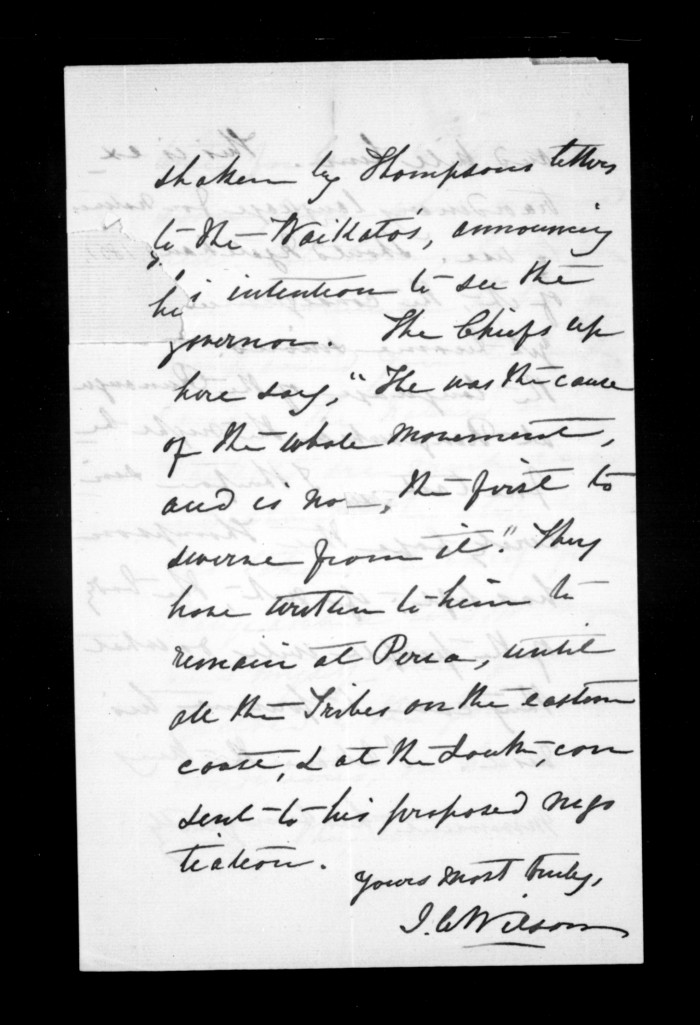 shaken by Thompsons letters
to the Waikatos, announcing
his intention to see the
governor. The Chiefs up
here say, "He was the cause
of the whole movement,
and is now, the first to
swerve from it." They
have written to him to
remain at Peria, until
all the Tribes on the eastern
coast, & at the South, con
sent to his proposed nego
tiation.
Yours most truly,
J. A. Wilson